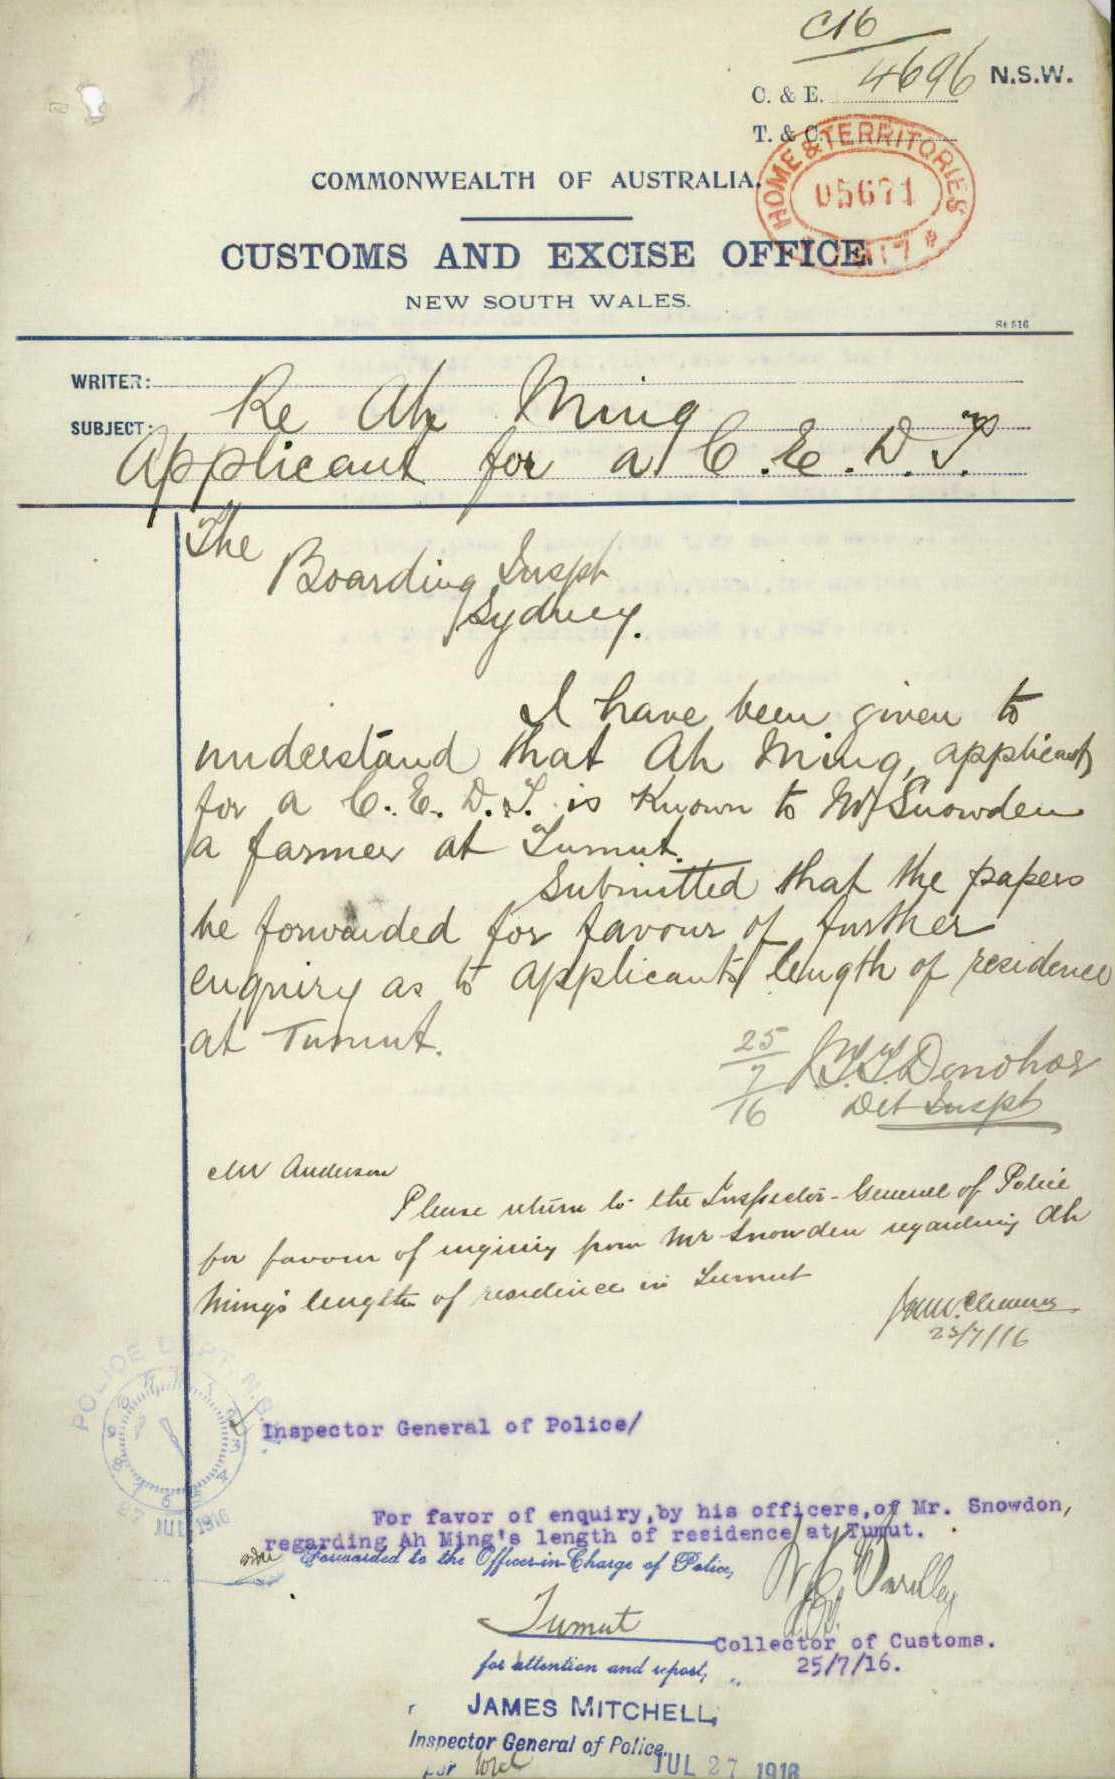 C16
4696 N.S.W.
C. & E.
T. & C.
HOME & TERRITORIES
05671
17
COMMONWEALTH OF AUSTRALIA.
CUSTOMS AND EXCISE OFFICE.
NEW SOUTH WALES.
St 516
WRITER:
SUBJECT: Re Ah Ming
Applicant for a C.E.D.T.
The
Boarding Inspr
Sydney.
I have been given to
understand that Ah Ming, applicant
for a C.E.D.T. is known to Mr Snowden
a farmer at Tumut.
Submitted that the papers
be forwarded for favour of further
enquiry as to applicants length of residence
at Tumut.
25/7/16 Donohoe
Det Inspr
Mr Anderson
Please return to the Inspector-General of Police
for favour of inquiry from Mr Snowden regarding Ah
Ming's length of residence in Tumut
23/7/16
POLICE
27 JUL 1916
Inspector General of Police/
For favor of enquiry,by his officers,of Mr. Snowdon,
regarding Ah Ming's length of residence at Tumut.
Forwarded to the Officer-in-Charge of Police,
Tumut
Collector of Customs.
for attention and report,
25/7/16.
JAMES MITCHELL,
Inspector General of Police.
per
JUL 27 1916